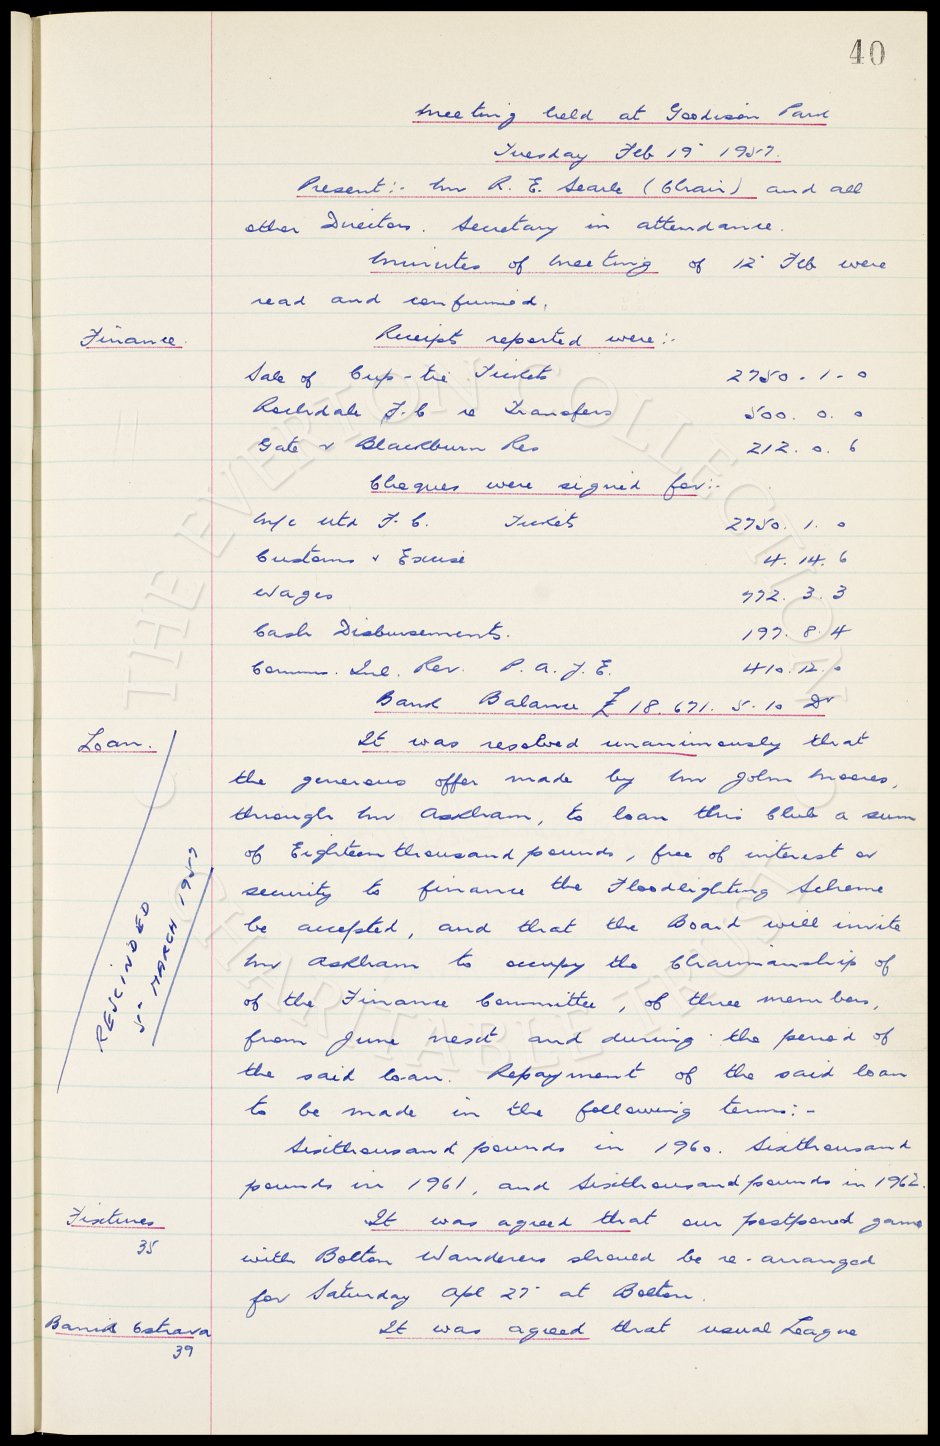 40
Meeting held at Goodison Park
Tuesday Feb 19" 1957.
Present:- Mr R. E. Searle (Chair) and all
other Directors. Secretary in attendance.
Minutes of Meeting of 12" Feb were
read and confirmed.
Finance. Receipts reported were:-
Sale of Cup-tie Tickets 2750 - 1 - 0
Rochdale F.C re Transfers 500. 0. 0
Gate v Blackburn Res 212. 0. 6
Cheques were signed for:-
M/c Utd F.C. Tickets 2750. 1. 0
Customs & Excise 4. 14. 6
Wages 772. 3. 3
Cash Disbursements. 197. 8. 4
Comms. Inl. Rev. P.A.Y.E. 410. 12. 0
Bank Balance £18.671. 5. 10 Dr
Loan. It was resolved unanimously that
the generous offer made by Mr John Moores,
through Mr Askham, to loan this Club a sum
of Eighteen thousand pounds, free of interest or
security to finance the Floodlighting Scheme
be accepted, and that the Board will invite
Mr Askham to occupy the Chairmanship of
of the Finance Committee, of three members,
from June next and during the period of
the said loan. Repayment of the said loan
to be made in the following terms:-
RESCINDED
5" MARCH 1957
Sixthousand pounds in 1960. Sixthousand
pounds in 1961, and Sixthousand pounds in 1962.
Fixtures It was agreed that our postponed game
35
with Bolton Wanderers should be re-arranged
for Saturday Apl 27" at Bolton.
Banik Ostrava It was agreed that usual League
39
© THE EVERTON COLLECTION
CHARITABLE TRUST